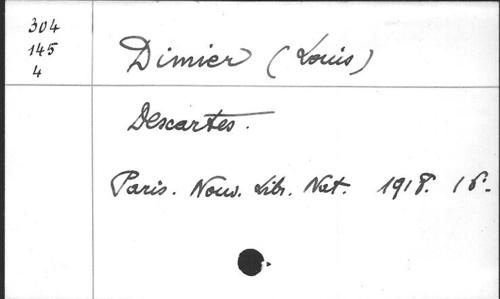 304
145
4
Dimier (Louis)
Descartes.
Paris. Nouv. Libr. Nat. 1918. 16.